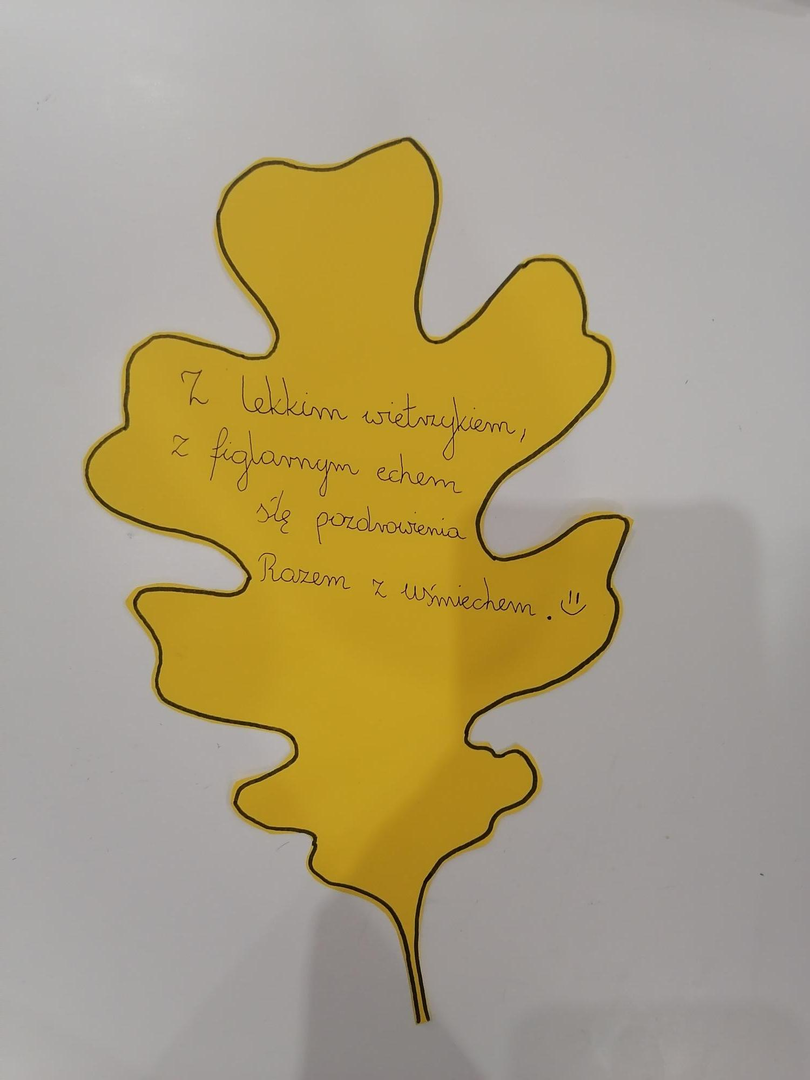 Z lekkim wietrzykiem,
z figlarnym echem
ślę pozdrowienia
Razem z uśmiechem.